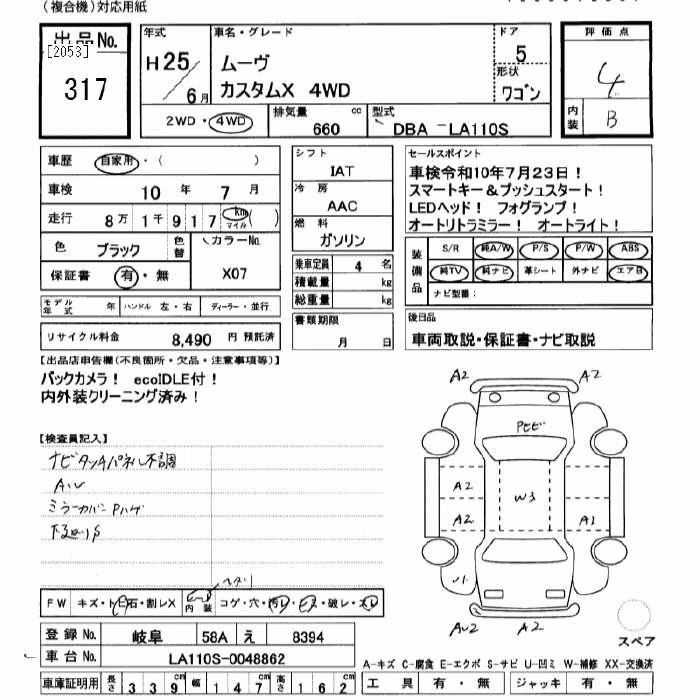 (複合機)対応用紙
出品No.
[2053]
317
年式
H25/6月
車名・グレード
ムーヴ
カスタムX 4WD
ドア
5
形状
ワゴン
評価点
4
内装
B
2WD・4WD
排気量
660
cc
型式
DBA -LA110S
車歴 自家用・( )
車検 10年 7月
走行 8万 1千 9 1 7 km マイル ( )
色 ブラック 色替
カラーNo.
X07
保証書 有・無
シフト
IAT
冷房
AAC
燃料
ガソリン
乗車定員 4 名
積載量 kg
総重量 kg
モデル年式 年 ハンドル 左・右 ディーラー・並行
リサイクル料金 8,490 円 預託済
書類期限
月 日
セールスポイント
車検令和10年7月23日!
スマートキー&プッシュスタート!
LEDヘッド! フォグランプ!
オートリトラミラー! オートライト!
装備品
S/R 純A/W P/S P/W ABS
純TV 純ナビ 革シート 外ナビ エアB
ナビ型番:
後日品
車両取説・保証書・ナビ取説
【出品店申告欄(不良箇所・欠品・注意事項等)】
バックカメラ! ecoIDLE付!
内外装クリーニング済み!
【検査員記入】
ナビタッチパネル不調
ミラーカバーPハゲ
A2
A2
Pヒビ
A2
W3
A2
A1
A2
FW キズ・トビ石・割レX
内装 コゲ・穴・汚レ・キズ・破レ・スレ
登録No. 岐阜 58A え 8394
車台No. LA110S-0048862
車庫証明用 長さ 339cm 幅 147cm 高さ 162cm
スペア
A-キズ C-腐食 E-エクボ S-サビ U-凹ミ W-補修 XX-交換済
工具 有・無 ジャッキ 有・無